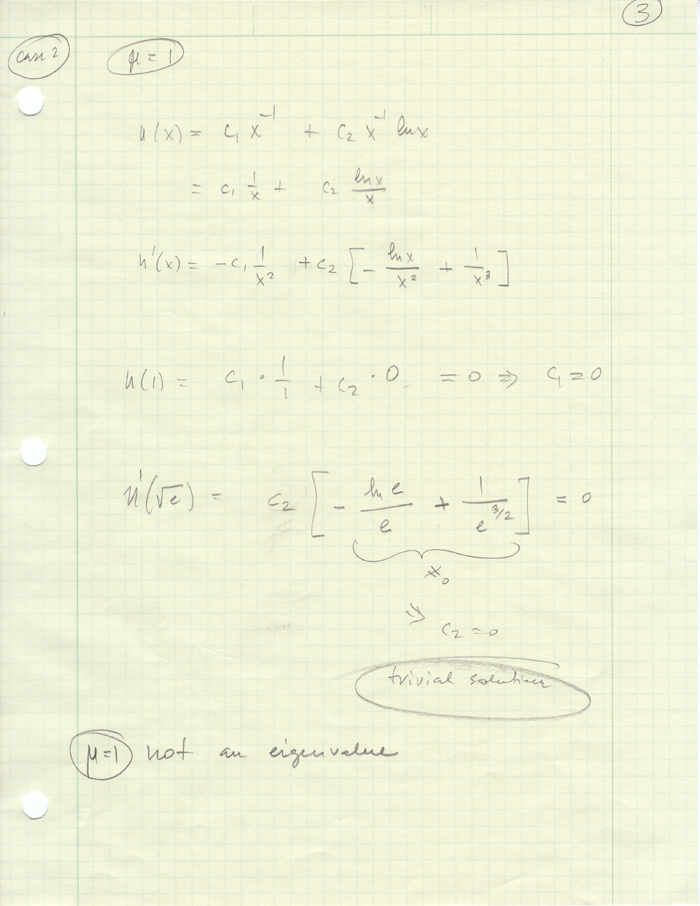 3
Case 2 μ = 1
u(x) = c₁ x⁻¹ + c₂ x⁻¹ ln x
= c₁ 1/x + c₂ ln x / x
u'(x) = -c₁ 1/x² + c₂ [ - ln x / x² + 1/x³ ]
u(1) = c₁ · 1/1 + c₂ · 0 = 0 ⇒ c₁ = 0
u'(√e) = c₂ [ - ln e / e + 1/e^{3/2} ] = 0
≠ 0
⇒ c₂ = 0
trivial solution
μ=1 not an eigenvalue